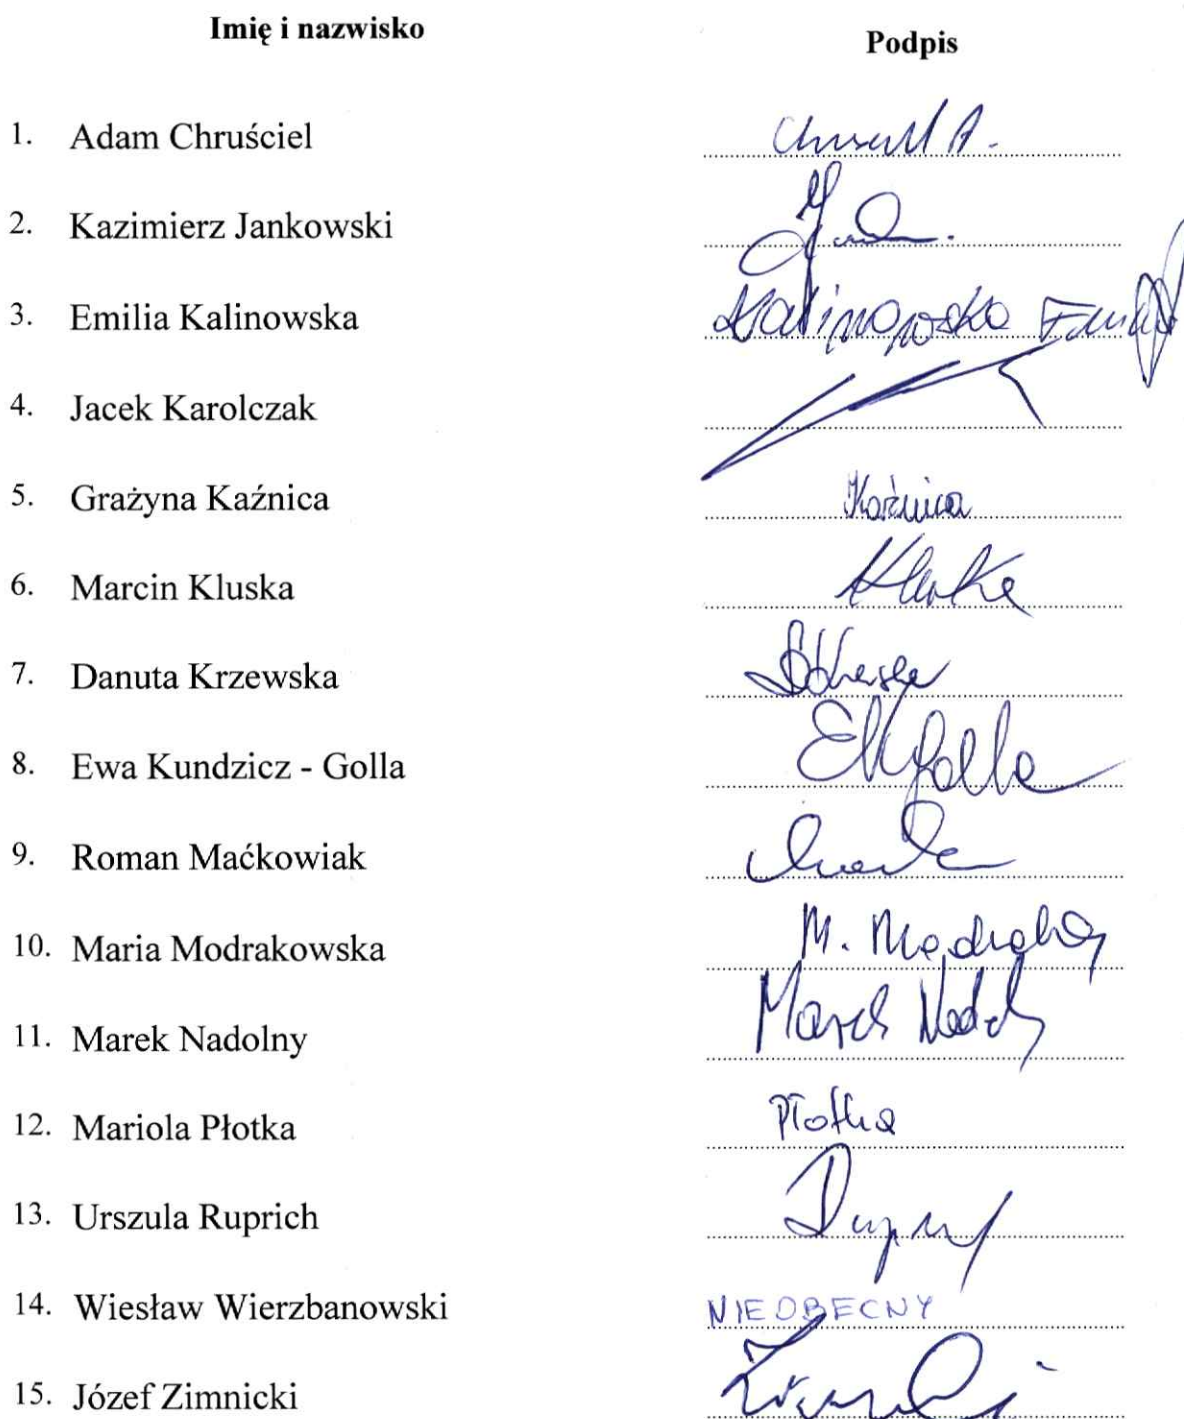 Imię i nazwisko Podpis
1. Adam Chruściel
2. Kazimierz Jankowski
3. Emilia Kalinowska Kalinowska
4. Jacek Karolczak
5. Grażyna Kaźnica Kaźnica
6. Marcin Kluska
7. Danuta Krzewska
8. Ewa Kundzicz - Golla EKGolla
9. Roman Maćkowiak
10. Maria Modrakowska M.
11. Marek Nadolny Marek
12. Mariola Płotka Płotka
13. Urszula Ruprich
14. Wiesław Wierzbanowski NIEOBECNY
15. Józef Zimnicki